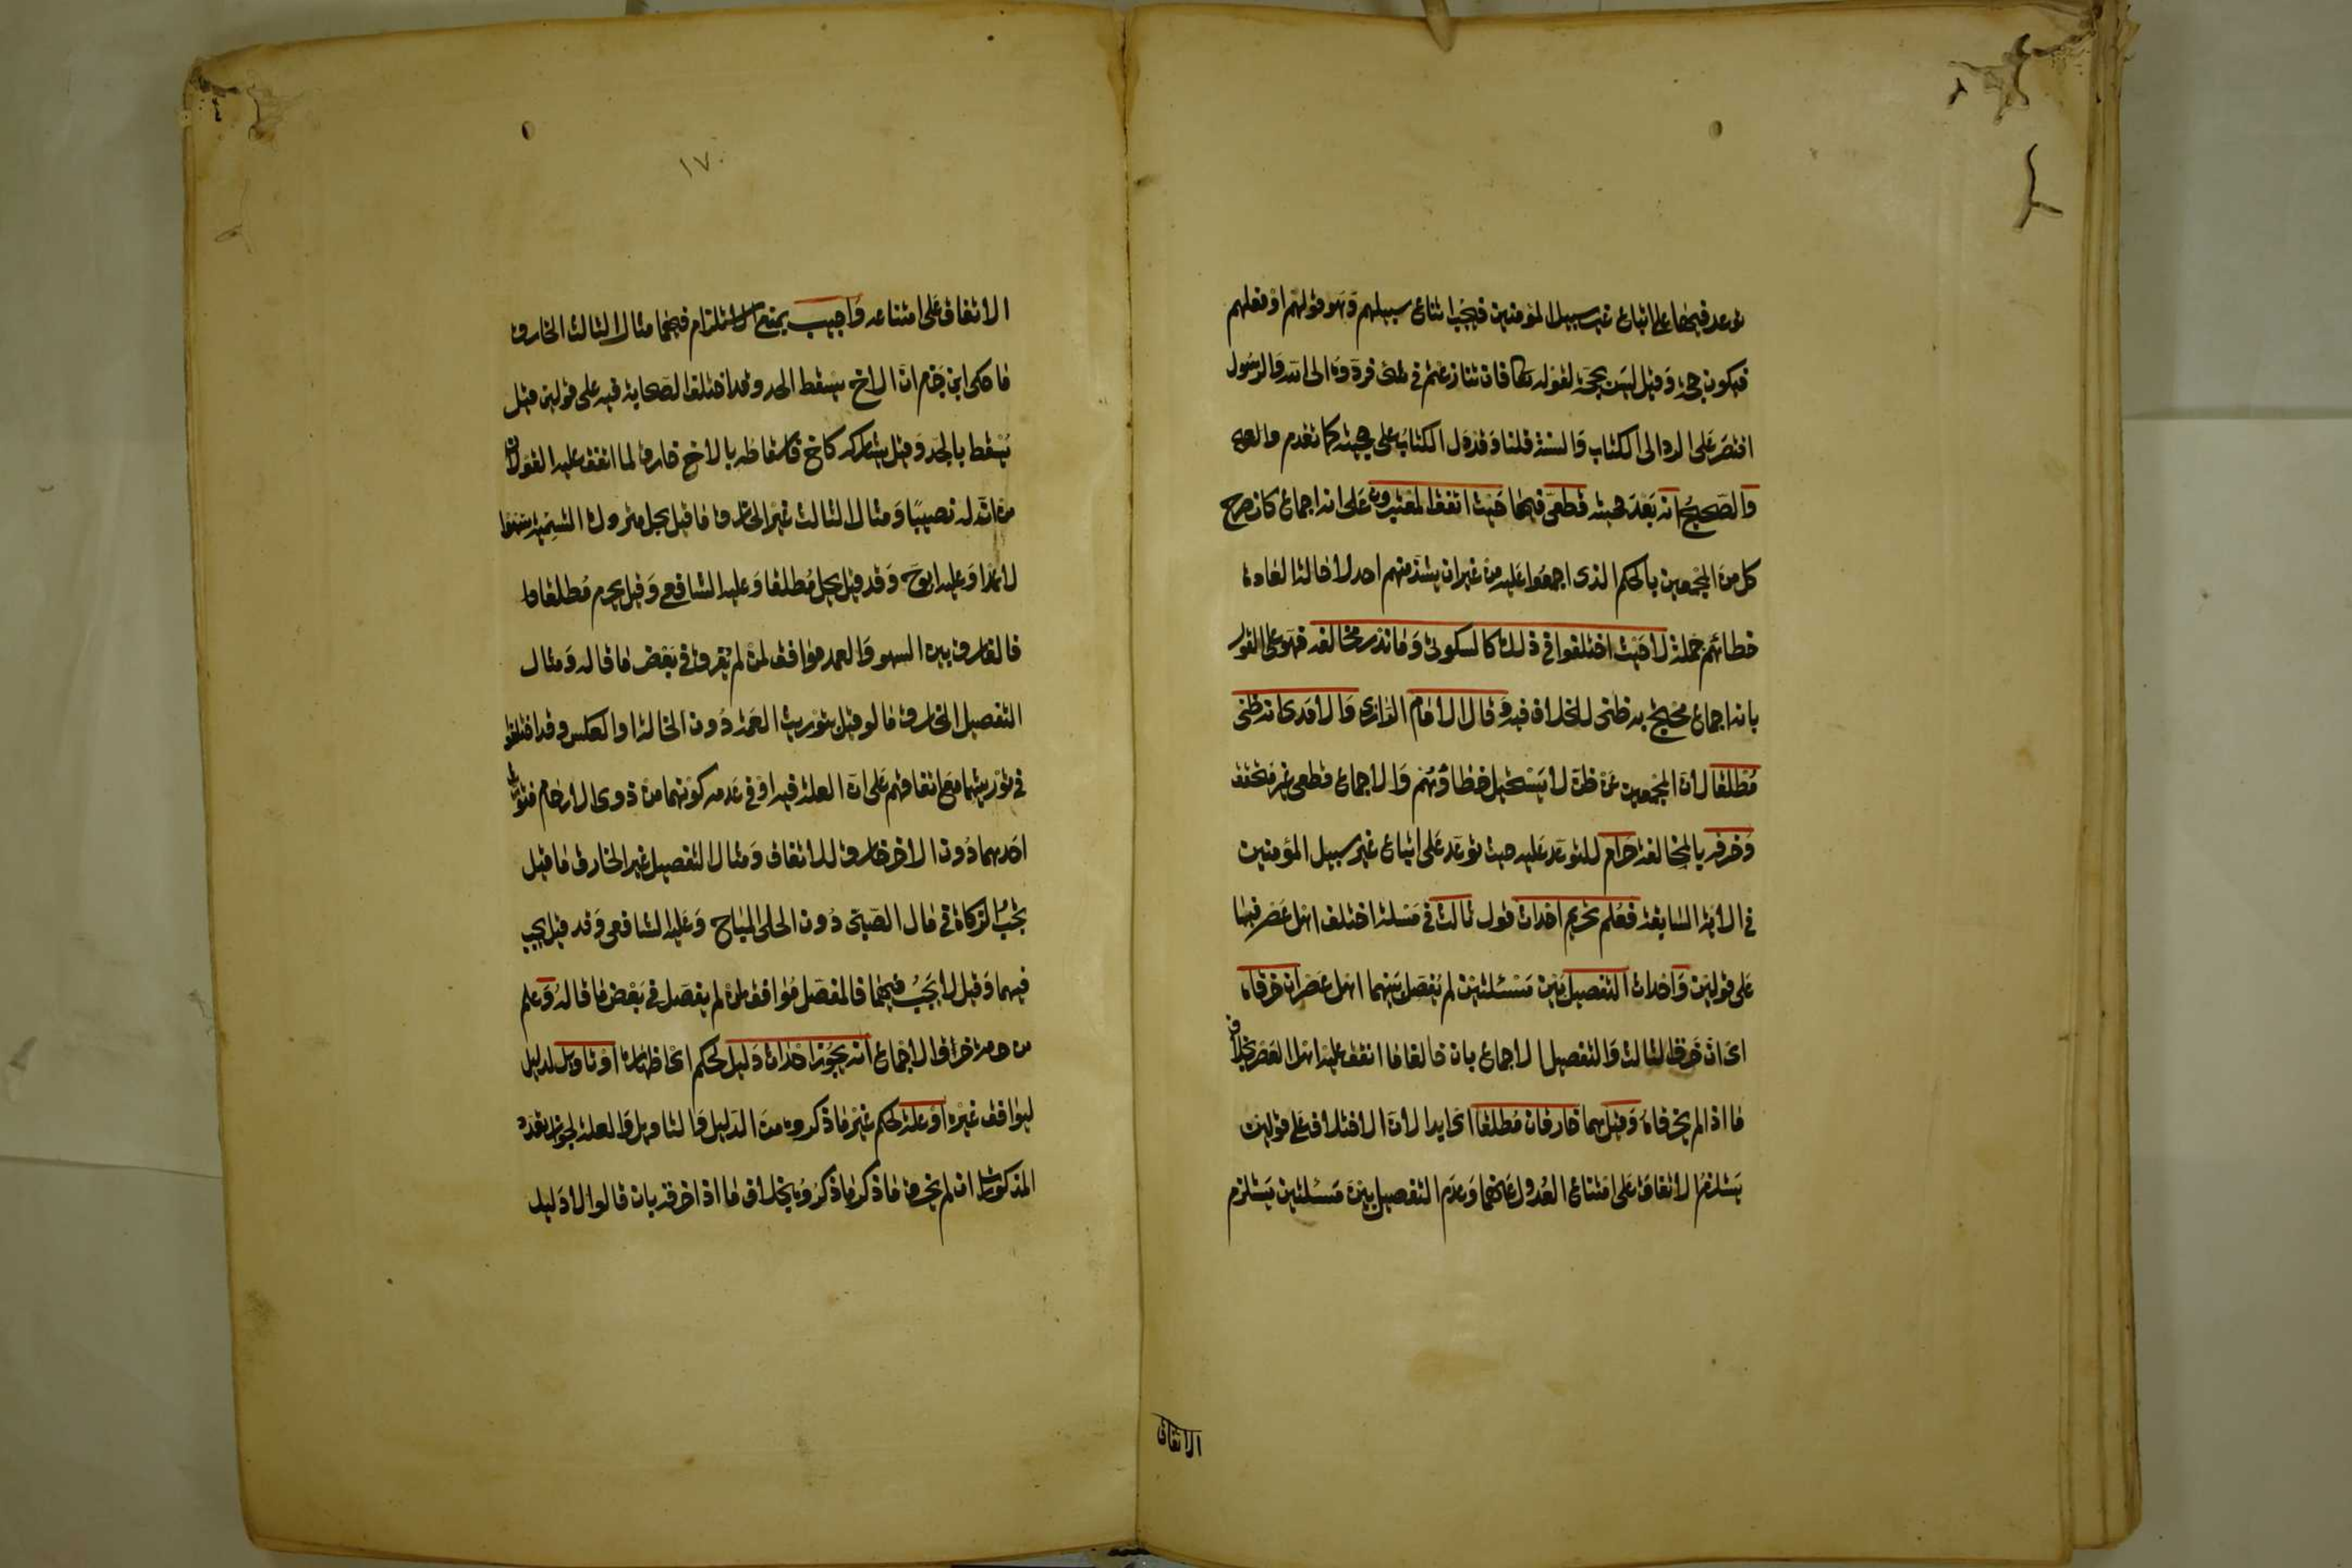 توعد فيها على اتباع غير سبيل المؤمنين فيجب اتباع سبيلهم وهو قولهم او فعلهم
فيكون حجة وقيل ليس بحجة لقوله تعالى فان تنازعتم في شئ فردوه الى الله والرسول
اقتصر على الرد الى الكتاب والسنة قلنا وقد دل الكتاب على حجيته كما تقدم
والصحيح انه بعد حجيته قطعى فيها حيث اتفق المعتبرون على انه اجماع كان صرح
كل من المجمعين بالحكم الذى اجمعوا عليه من غير ان يشذ منهم احد لاحالة العادة
خطائهم جملة لا حيث اختلفوا في ذلك كالسكوتى وما ندر مخالفه فهو على القول
بانه اجماع محتج به ظنى للخلاف فيه وقال الامام الرازى والآمدى انه ظنى
مطلقا لان المجمعين عن ظن لا يستحيل خطاؤهم والاجماع قطعى غير متحقق
وخرقه بالمخالفة حرام للتوعد عليه حيث توعد على اتباع غير سبيل المؤمنين
في الآية السابقة فعلم تحريم احداث قول ثالث في مسئلة اختلف اهل عصر فيها
على قولين واحداث التفصيل بين مسئلتين لم يفصل بينهما اهل عصر ان خرقاه
اى ان خرق الثالث والتفصيل الاجماع بان خالفا ما اتفق عليه اهل العصر بخلاف
ما اذا لم يخرقاه وقيل هما خارقان مطلقا اى ابدا لان الاختلاف على قولين
يستلزم الاتفاق على امتناع العدول عنهما وعدم التفصيل بين مسئلتين يستلزم
الاتفاق
١٧٠
الاتفاق على امتناعه واجيب بمنع الاستلزام فيهما مثال الثالث الخارق
ما حكى ابن حزم ان الاخ يسقط الجد وقد اختلف الصحابة فيه على قولين قيل
يسقط بالجد وقيل يشاركه كاخ فاسقاطه بالاخ خارق لما اتفق عليه القولان
من ان له نصيبا ومثال الثالث غير الخارق ما قيل يحل متروك التسمية سهوا
لا عمدا وعليه ابو ح وقد قيل يحل مطلقا وعليه الشافعي وقيل يحرم مطلقا
فالفارق بين السهو والعمد موافق لمن لم يفرق في بعض ما قاله ومثال
التفصيل الخارق ما لو قيل بتوريث العمة دون الخالة او العكس وقد اختلفوا
في توريثهما مع اتفاقهم على ان العلة فيه او في عدمه كونهما من ذوى الارحام فتوريث
احديهما دون الاخر خارق للاتفاق ومثال التفصيل غير الخارق ما قيل
يجب الزكاة في مال الصبى دون الحلى المباح وعليه الشافعى وقد قيل يجب
فيهما وقيل لا يجب فيهما فالمفصل موافق لمن لم يفصل في بعض ما قاله وعلم
من حرمة خرق الاجماع انه يجوز احداث دليل لحكم اى اظهاره او تاويل لدليل
ليوافق غيره او علة لحكم غير ما ذكروه من الدليل والتاويل والعلة لجواز تعدد
المذكورات ان لم يخرق ما ذكر ما ذكروه بخلاف ما اذا خرقه بان قالوا لا دليل